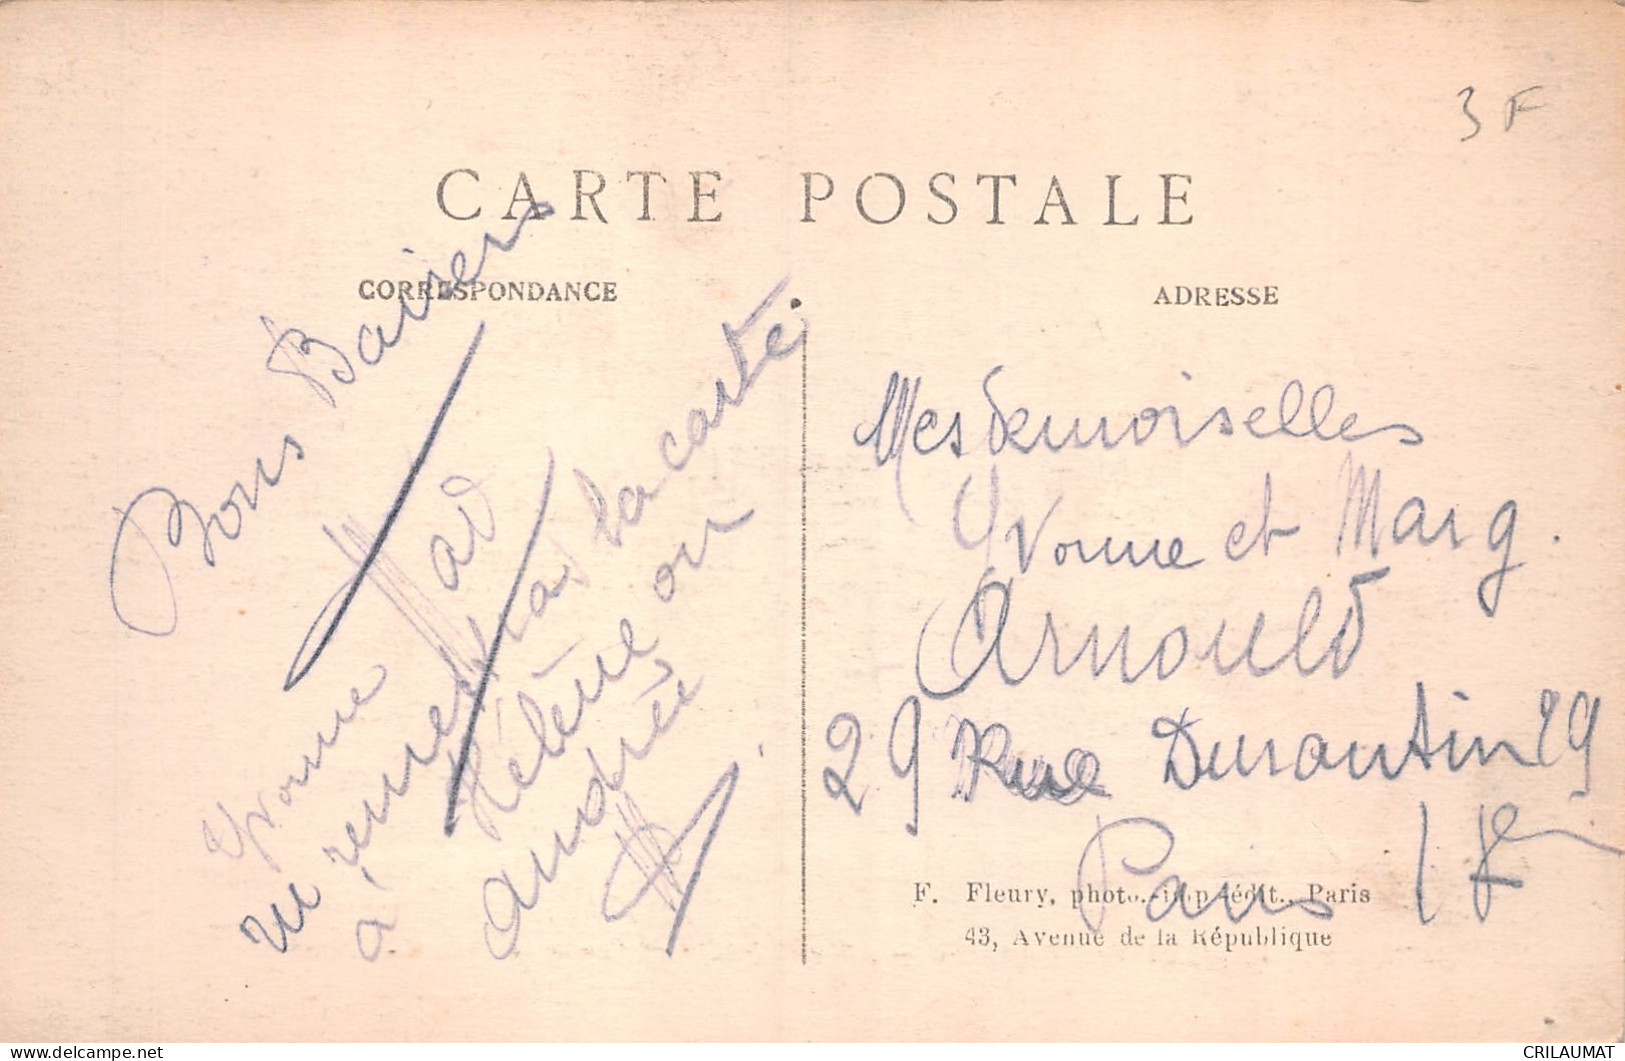 3 F
CARTE POSTALE
CORRESPONDANCE
ADRESSE
Bons Baisers
Mad
Yvonne
tu remettras la carte
à Hélène ou
Andrée
Mesdemoiselles
Yvonne et Marg.
Arnould
29 Rue Durantin 29
Paris
F. Fleury, phot.-imp.-édit., Paris
43, Avenue de la République
CRILAUMAT